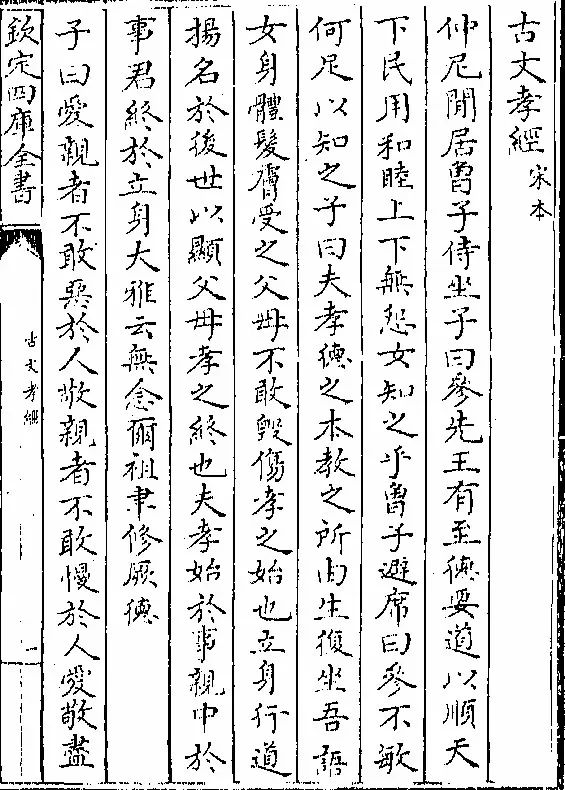 古文孝經 宋本
仲尼閒居曾子侍坐子曰參先王有至徳要道以順天
下民用和睦上下無怨女知之乎曾子避席曰參不敏
何足以知之子曰夫孝徳之本教之所由生復坐吾語
女身體髮膚受之父母不敢毀傷孝之始也立身行道
揚名於後世以顯父母孝之終也夫孝始於事親中於
事君終於立身大雅云無念爾祖聿修厥徳
子曰愛親者不敢惡於人敬親者不敢慢於人愛敬盡
欽定四庫全書
古文孝經
一